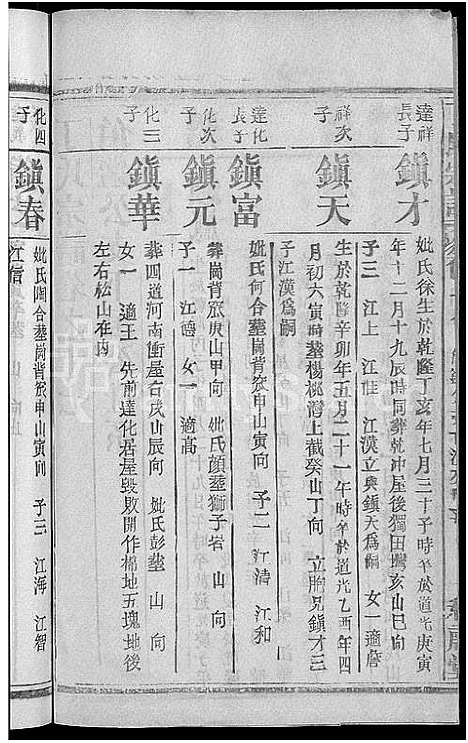 達祥
長子
鎮才
妣氏徐生於乾隆丁亥年七月三十子時卒於道光庚寅
年十二月十九辰時同葬乾沖屋後獨田灣亥山巳向
子三 江上 江 江漢立與鎮天為嗣 女一適詹
祥次
子
鎮天
生於乾隆辛卯年五月二十一午時卒於道光乙酉年四
月初六寅時葬楊桃灣上截癸山丁向 立胞兄鎮才三
子江漢為嗣
達化
長子
鎮富
妣氏何合葬崗背旅申山寅向 子二 江清 江和
化次
子
鎮元
葬崗背旅庚山甲向 妣氏顏葬獅子岩 山 向
子一 江德 女一 適高
化三
子
鎮華
葬四道河南衝屋右戌山辰向 妣氏彭葬 山 向
女一適王 先前達化居屋毀敗開作棉地五塊地後
左右松山在內
化四
子
鎮春
妣氏陶合葬崗背旅申山寅向 子三 江海 江智
江信